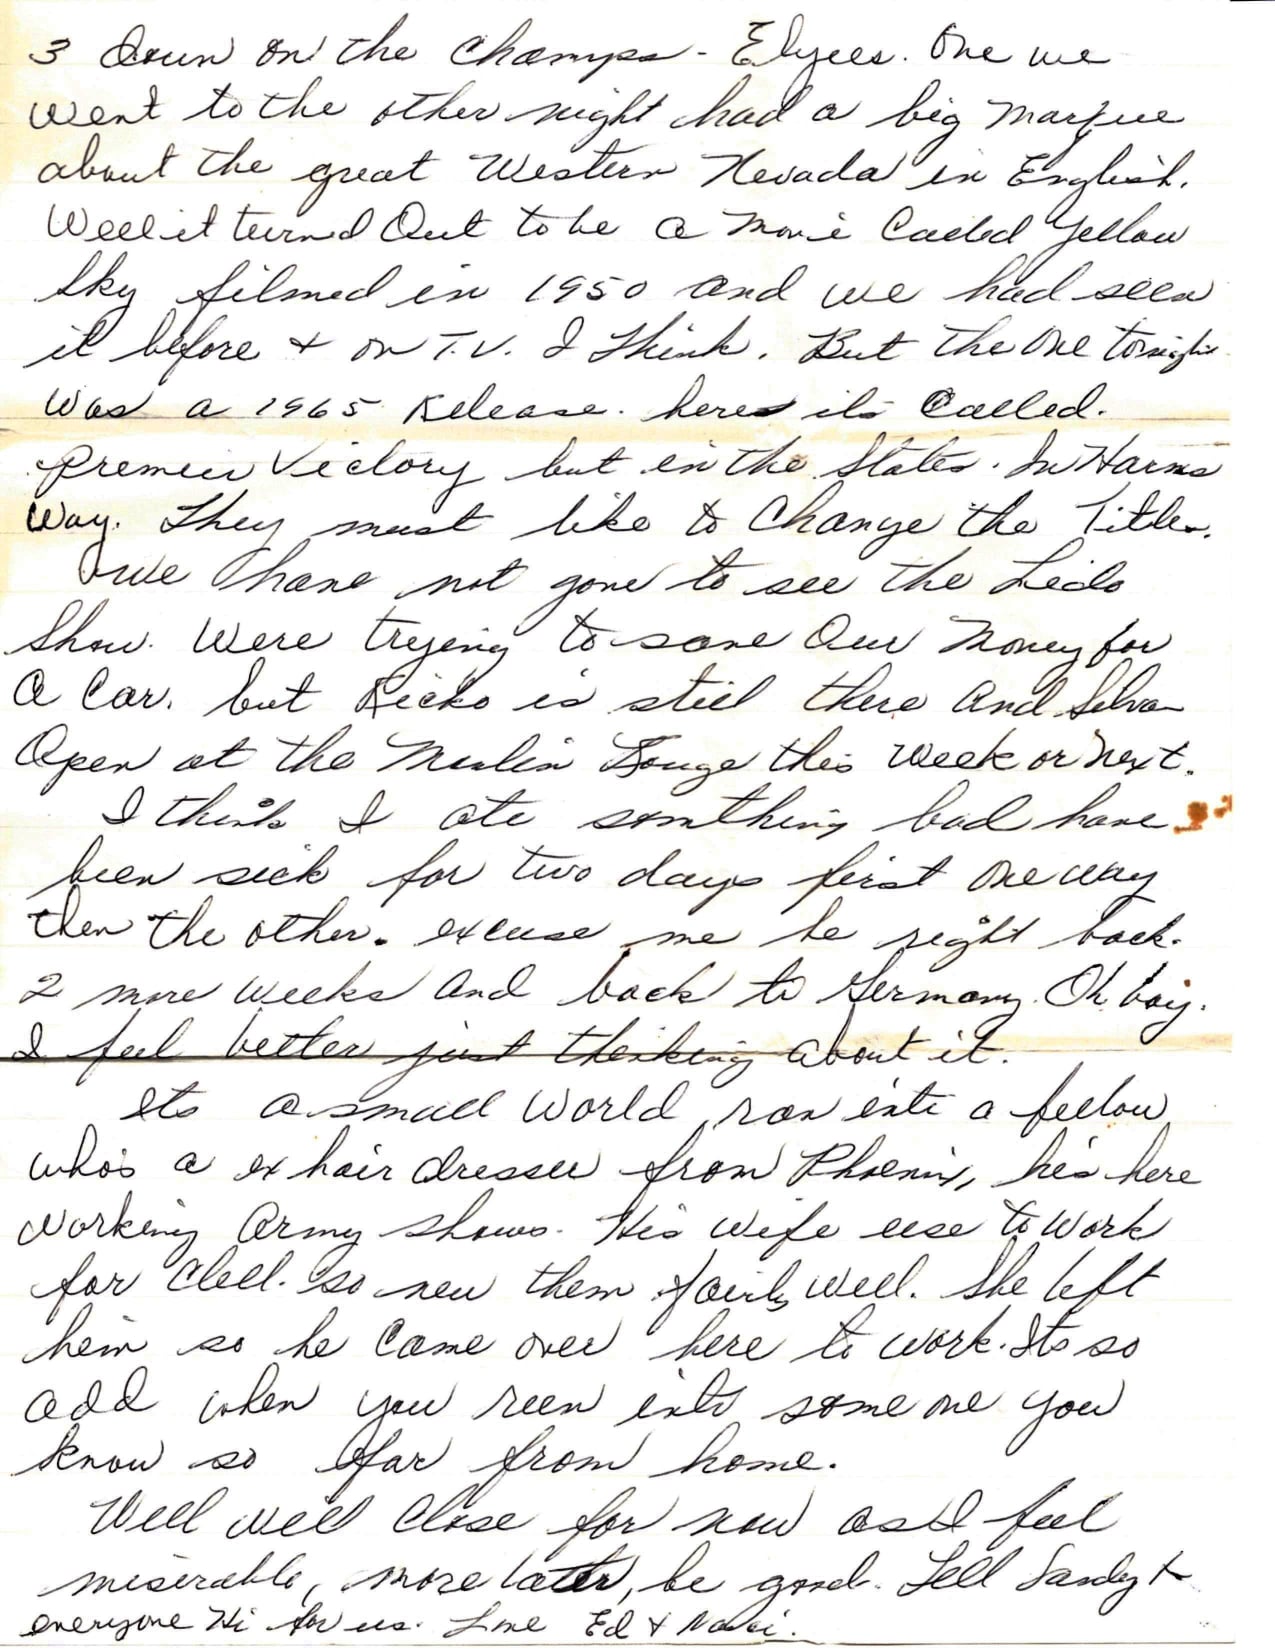 3 down on the Champs - Elyees. One we
went to the other night had a big Marque
about the great Western Nevada in English.
Well it turnd Out to be a Movie Called Yellow
Sky filmed in 1950 and we had seen
it before + on T.V. I think. But the one tonight
was a 1965 Release. here its Called.
Premier Victory but in the States. In Harms
Way. They must like to Change the Titles.
we have not gone to see the Lido
Show. Were trying to save Our Money for
a Car. but Ricko is still there and
Open at the Moulin Rouge this week or next.
I think I ate somthing bad have
been sick for two days first one way
then the other. excuse me be right back.
2 more weeks and back to Germany. Oh boy.
I feel better just thinking about it.
Its a small World, ran into a fellow
who's a ex hair dresser from Phoenix, he's here
working Army shows. His wife use to work
for Clell. so new them fairly well. She left
him so he Came over here to work. Its so
odd when you run into some one you
know so far from home.
Well will Close for now as I feel
miserable, more later, be good. Tell Sandy +
everyone Hi for us. Love Ed +